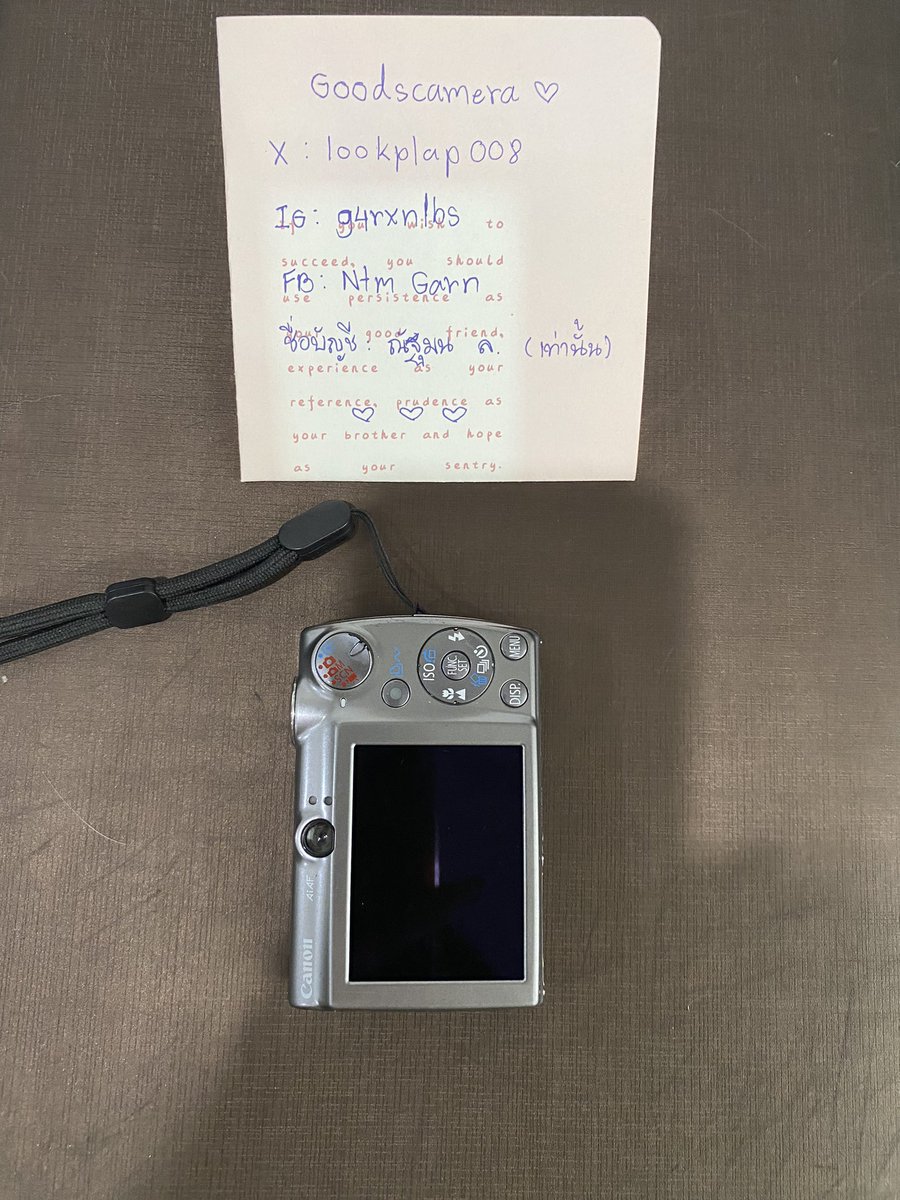 Goodscamera ♡
X : lookplap008
IG : g4rxnlbs
wish to
succeed, you should
FB : Ntm Garn
use persistence as
good friend,
ชื่อบัญชี : ณัฐมน ล. (เท่านั้น)
experience as your
reference, prudence as
♡ ♡ ♡
your brother and hope
as your sentry.
MENU
DISP.
FUNC.
SET
ISO
SCN
AiAF
Canon